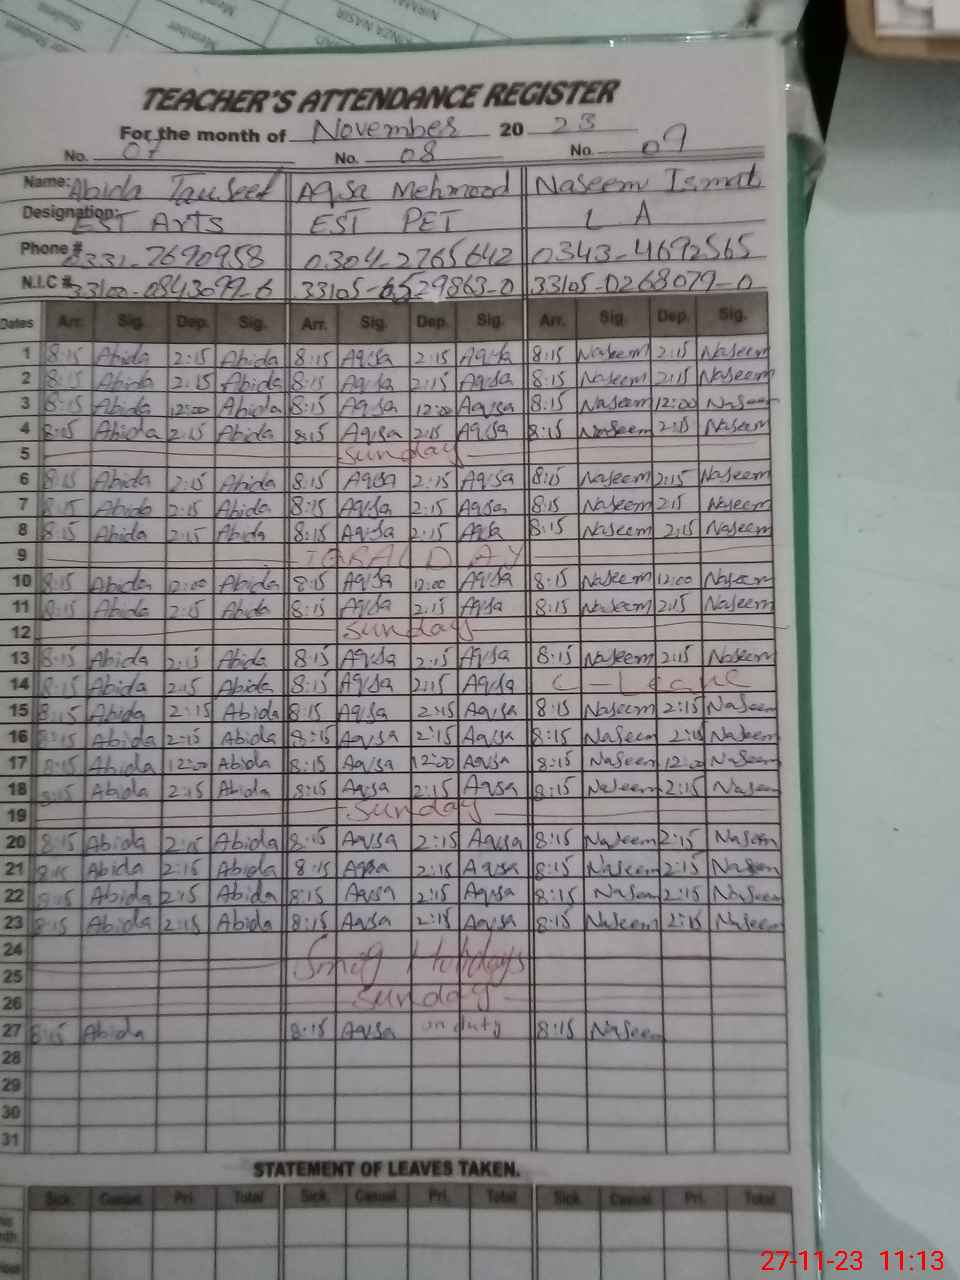 KINZA NASIR
NIRMA
Member
Student
TEACHER'S ATTENDANCE REGISTER
For the month of November 20 23
No. 07 No. 08 No. 09
Name: Abida Tauseef Aqsa Mehmood Naseem Ismat
Designation: EST Arts EST PET L A
Phone # 0331-7690958 0304-2765642 0343-4692565
N.I.C # 33100-0843099-6 33105-6529863-0 33105-0268079-0
Dates Arr. Sig. Dep. Sig. Arr. Sig. Dep. Sig. Arr. Sig. Dep. Sig.
1 8:15 Abida 2:15 Abida 8:15 Aqsa 2:15 Aqsa 8:15 Naseem 2:15 Naseem
2 8:15 Abida 2:15 Abida 8:15 Aqsa 2:15 Aqsa 8:15 Naseem 2:15 Naseem
3 8:15 Abida 12:00 Abida 8:15 Aqsa 12:00 Aqsa 8:15 Naseem 12:00 Naseem
4 8:15 Abida 2:15 Abida 8:15 Aqsa 2:15 Aqsa 8:15 Naseem 2:15 Naseem
5 Sunday
6 8:15 Abida 2:15 Abida 8:15 Aqsa 2:15 Aqsa 8:15 Naseem 2:15 Naseem
7 8:15 Abida 2:15 Abida 8:15 Aqsa 2:15 Aqsa 8:15 Naseem 2:15 Naseem
8 8:15 Abida 2:15 Abida 8:15 Aqsa 2:15 Aqsa 8:15 Naseem 2:15 Naseem
9 IQBAL DAY
10 8:15 Abida 12:00 Abida 8:15 Aqsa 12:00 Aqsa 8:15 Naseem 12:00 Naseem
11 8:15 Abida 2:15 Abida 8:15 Aqsa 2:15 Aqsa 8:15 Naseem 2:15 Naseem
12 Sunday
13 8:15 Abida 2:15 Abida 8:15 Aqsa 2:15 Aqsa 8:15 Naseem 2:15 Naseem
14 8:15 Abida 2:15 Abida 8:15 Aqsa 2:15 Aqsa C-Leave
15 8:15 Abida 2:15 Abida 8:15 Aqsa 2:15 Aqsa 8:15 Naseem 2:15 Naseem
16 8:15 Abida 2:15 Abida 8:15 Aqsa 2:15 Aqsa 8:15 Naseem 2:15 Naseem
17 8:15 Abida 12:00 Abida 8:15 Aqsa 12:00 Aqsa 8:15 Naseem 12:00 Naseem
18 8:15 Abida 2:15 Abida 8:15 Aqsa 2:15 Aqsa 8:15 Naseem 2:15 Naseem
19 Sunday
20 8:15 Abida 2:15 Abida 8:15 Aqsa 2:15 Aqsa 8:15 Naseem 2:15 Naseem
21 8:15 Abida 2:15 Abida 8:15 Aqsa 2:15 Aqsa 8:15 Naseem 2:15 Naseem
22 8:15 Abida 2:15 Abida 8:15 Aqsa 2:15 Aqsa 8:15 Naseem 2:15 Naseem
23 8:15 Abida 2:15 Abida 8:15 Aqsa 2:15 Aqsa 8:15 Naseem 2:15 Naseem
24
25 Smog Holidays
26 Sunday
27 8:15 Abida 8:15 Aqsa on duty 8:15 Naseem
28
29
30
31
STATEMENT OF LEAVES TAKEN.
Sick. Casual. Pri. Total Sick. Casual. Pri. Total Sick. Casual. Pri. Total
27-11-23 11:13